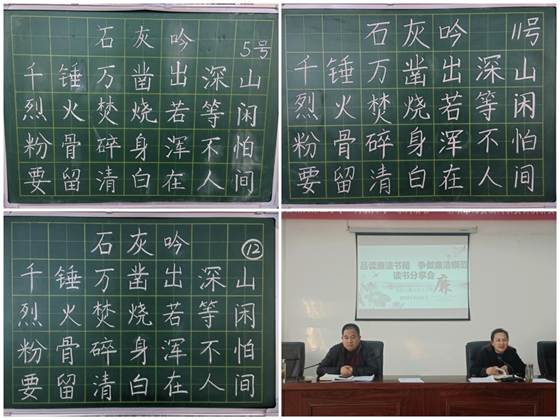 石灰吟
5号
千锤万凿出深山
烈火焚烧若等闲
粉骨碎身浑不怕
要留清白在人间
石灰吟
11号
千锤万凿出深山
烈火焚烧若等闲
粉骨碎身浑不怕
要留清白在人间
石灰吟
12
千锤万凿出深山
烈火焚烧若等闲
粉骨碎身浑不怕
要留清白在人间
品读廉洁书籍 争做廉洁模范
读书分享会
廉